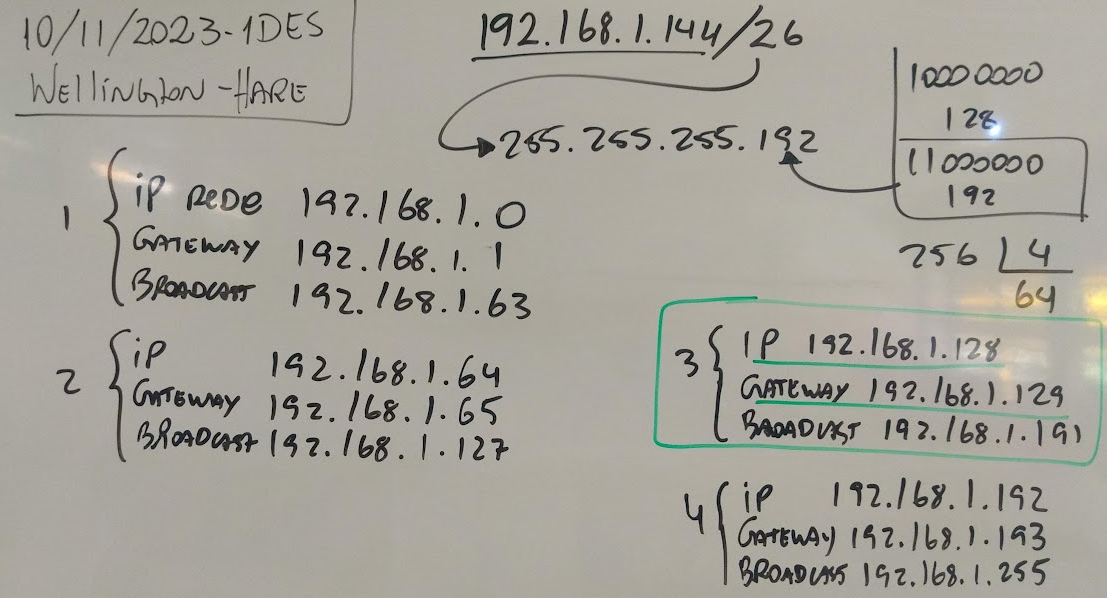 10/11/2023-1DES
WELLINGTON-HARE
192.168.1.144/26
255.255.255.192
10000000
128
11000000
192
256 4
64
1
IP REDE 192.168.1.0
GATEWAY 192.168.1.1
BROADCAST 192.168.1.63
2
IP 192.168.1.64
GATEWAY 192.168.1.65
BROADCAST 192.168.1.127
3
IP 192.168.1.128
GATEWAY 192.168.1.129
BROADCAST 192.168.1.191
4
IP 192.168.1.192
GATEWAY 192.168.1.193
BROADCAST 192.168.1.255